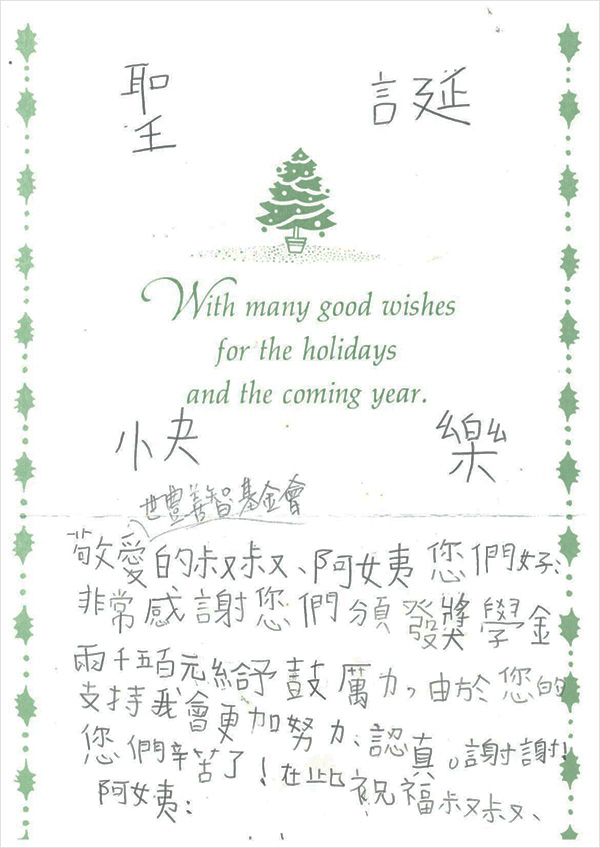 聖 誕
With many good wishes
for the holidays
and the coming year.
快 樂
世豐善智基金會
敬愛的叔叔、阿姨您們好:
非常感謝您們頒發獎學金
兩千五百元給予鼓厲力,由於您的
支持我會更加努力、認真。謝謝!
您們辛苦了!在此祝福叔叔、
阿姨: